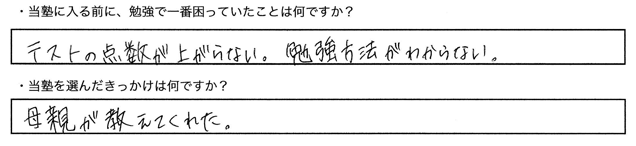 ・当塾に入る前に、勉強で一番困っていたことは何ですか？
テストの点数が上がらない。勉強方法がわからない。
・当塾を選んだきっかけは何ですか？
母親が教えてくれた。